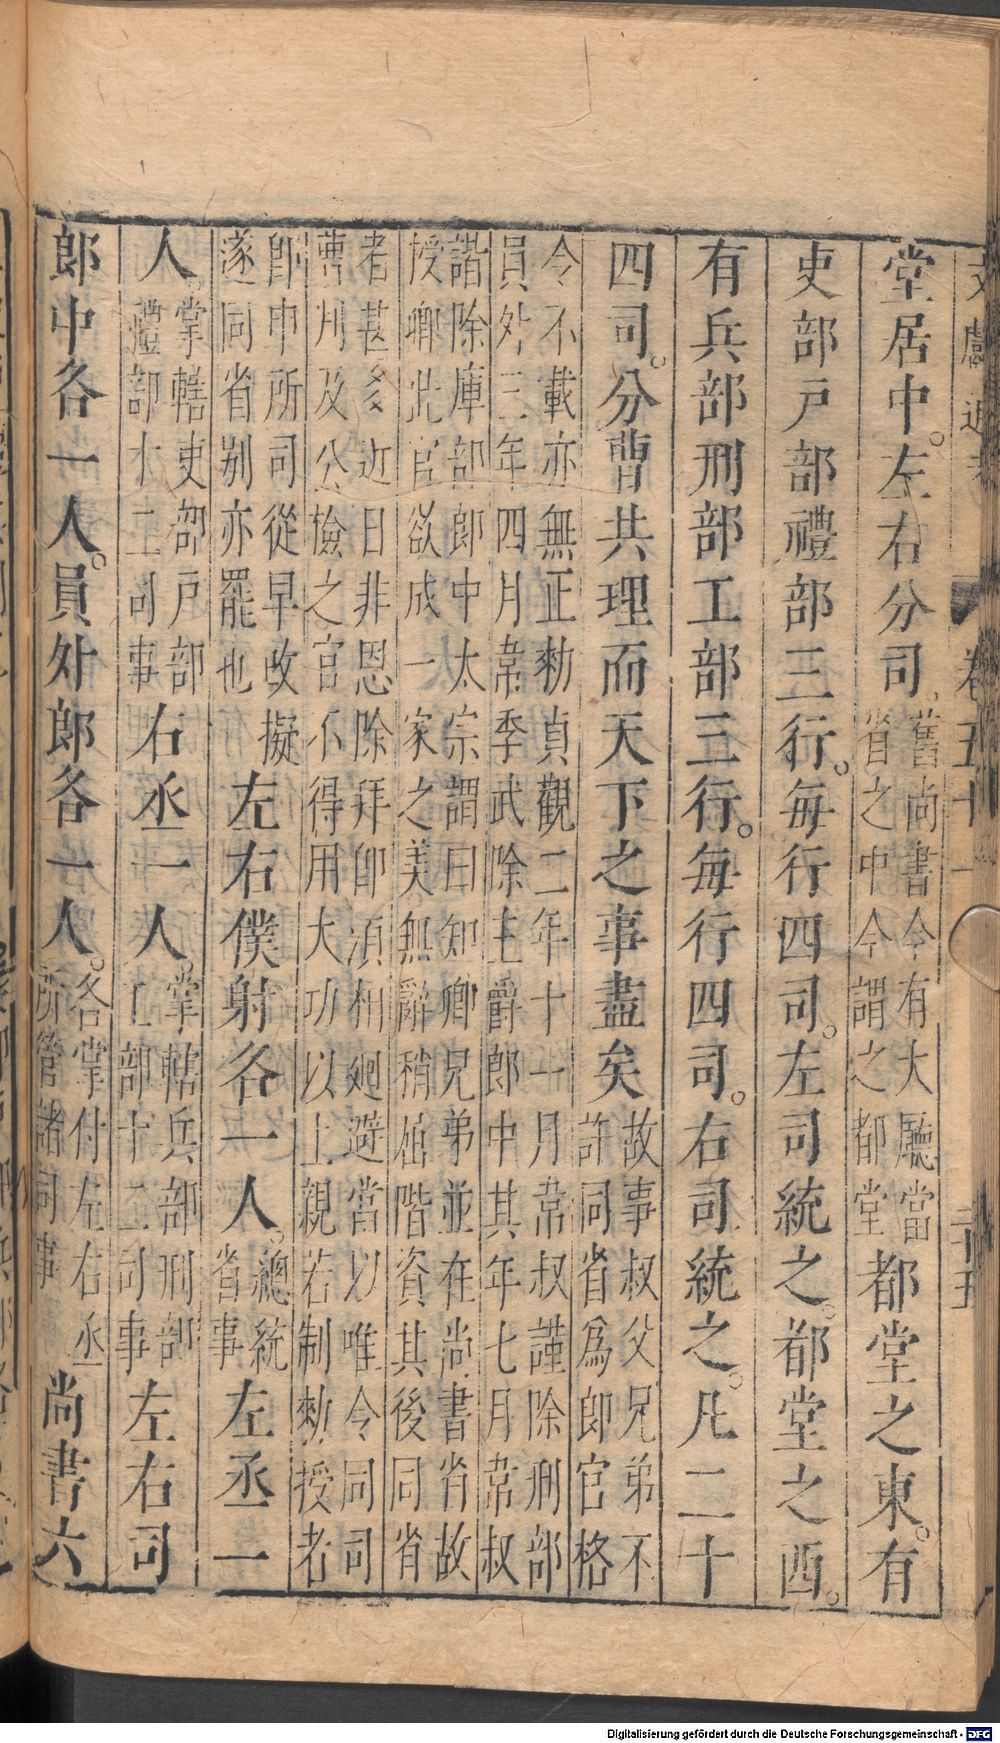 文獻通考 卷五十一 二十五
堂居中。左右分司。舊尚書令有大廳當省之中今謂之都堂都堂之東。有
吏部戸部禮部三行。每行四司。左司統之。都堂之西。
有兵部刑部工部三行。每行四司。右司統之。凡二十
四司。分曹共理而天下之事盡矣故事叔父兄弟不許同省爲郎官格
令不載亦無正勅貞觀二年十一月韋叔謹除刑部
員外三年四月韋季武除主爵郎中其年七月韋叔
諧除庫部郎中太宗謂曰知卿兄弟並在尚書省故
授卿此官欲成一家之美無辭稍屈階資其後同省
者甚多近日非恩除拜卽湏相廻避當以唯令同司
曹判及公檢之官不得用大功以上親若制勅授者
卽申所司從早改擬遂同省别亦罷也左右僕射各一人。總統省事左丞一
人。掌轄吏部戸部禮部十二司事右丞一人。掌轄兵部刑部工部十二司事左右司
郎中各一人。員外郎各一人。各掌付左右丞所管諸司事尚書六
Digitalisierung gefördert durch die Deutsche Forschungsgemeinschaft - DFG